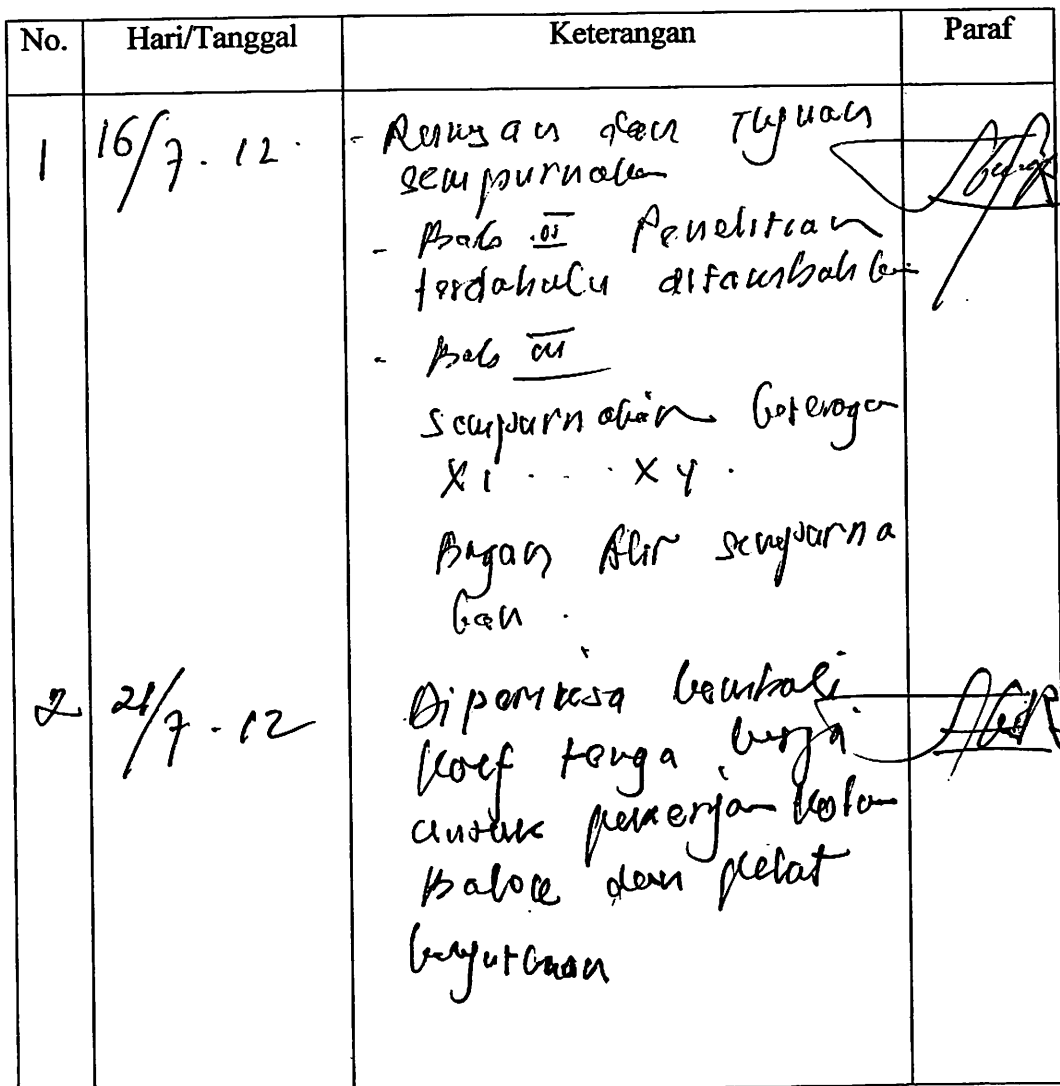 No. Hari/Tanggal Keterangan Paraf
1 16/7.12. - Rumusan dan Tujuan
sempurnakan
- Bab II Penelitian
terdahulu ditambahkan
- Bab III
sempurnakan keterangan
X1 . . . X4 .
Bagan Alir sempurna
kan .
2 21/7.12 Diperiksa kembali
koef tenga kerja
untuk pekerjan kolom
Balok dan pelat
Lanjutkan